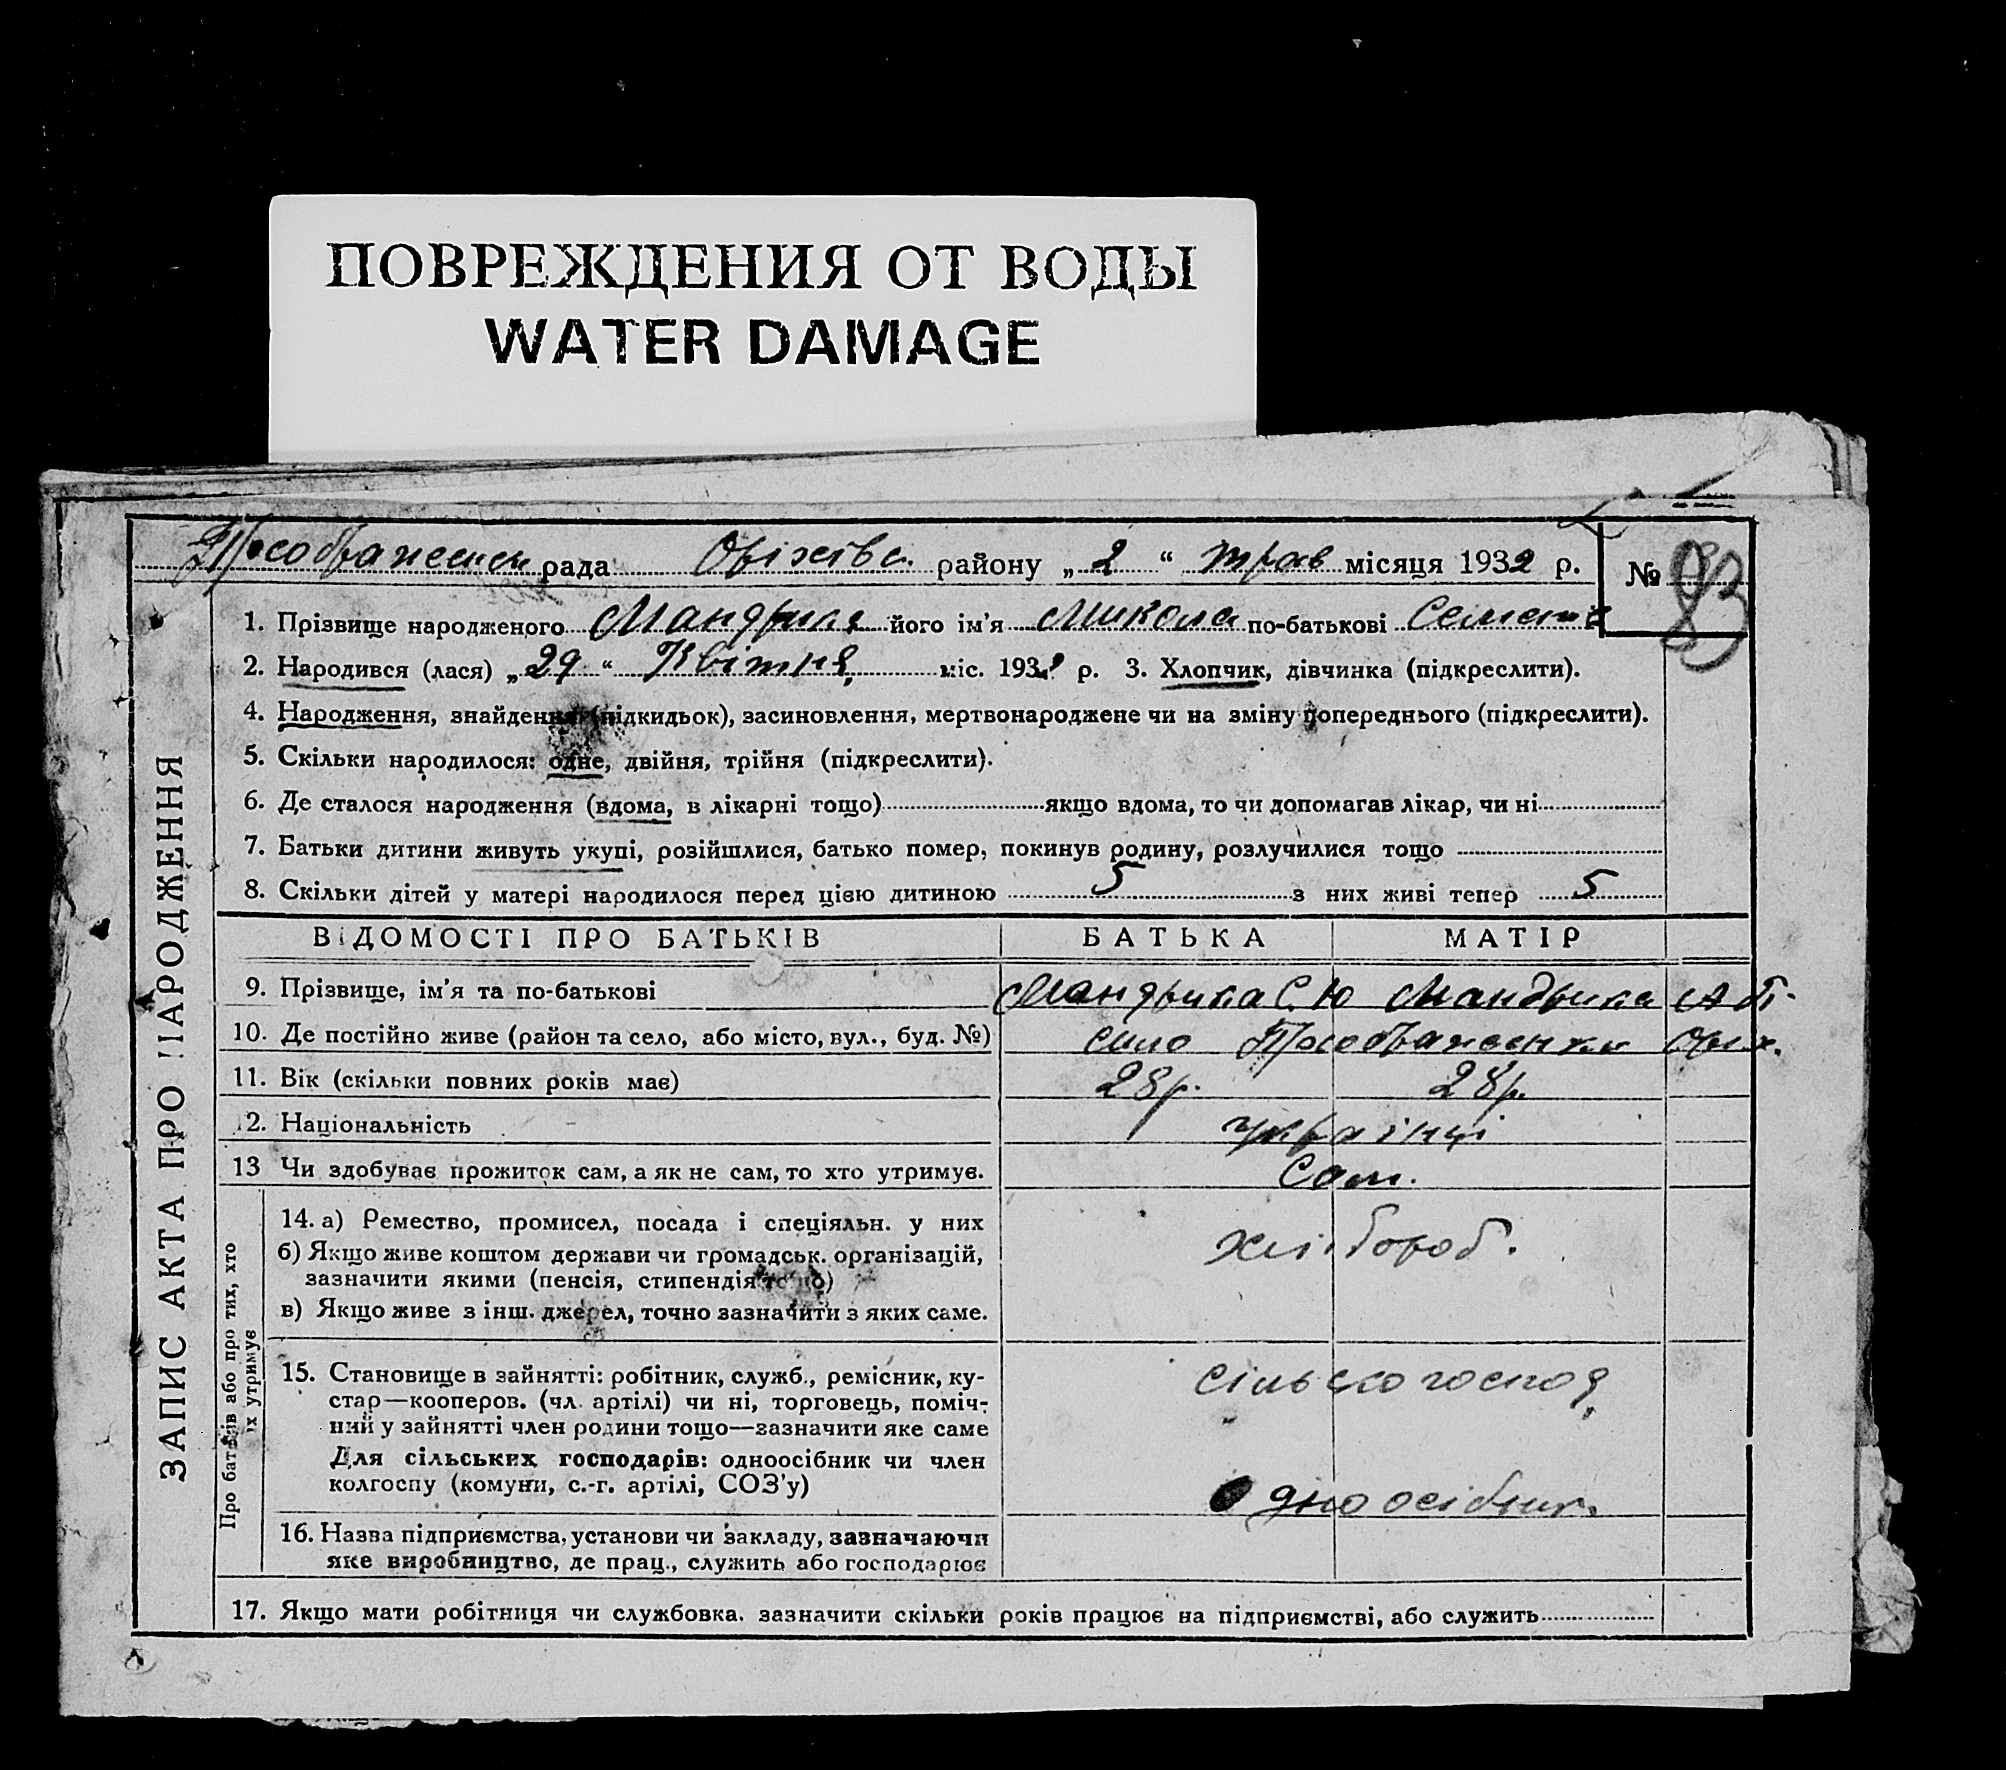 ПОВРЕЖДЕНИЯ ОТ ВОДЫ
WATER DAMAGE
Преображенськ рада Оріхівс. району „2“ трав місяця 1932 р. № 83
1. Прізвище народженого Мандрика його ім'я Микола по-батькові
2. Народився (лася) „29“ Квітня міс. 1932 р. 3. Хлопчик, дівчинка (підкреслити).
4. Народження, знайдення (підкидьок), засиновлення, мертвонароджене чи на зміну попереднього (підкреслити).
5. Скільки народилося: одне, двійня, трійня (підкреслити).
6. Де сталося народження (вдома, в лікарні тощо) якщо вдома, то чи допомагав лікар, чи ні
7. Батьки дитини живуть укупі, розійшлися, батько помер, покинув родину, розлучилися тощо
8. Скільки дітей у матері народилося перед цією дитиною 5 з них живі тепер 5
ВІДОМОСТІ ПРО БАТЬКІВ БАТЬКА МАТІР
9. Прізвище, ім'я та по-батькові Мандрика С. Ю Мандрика А
10. Де постійно живе (район та село, або місто, вул., буд. №) село Преображенка Оріх.
11. Вік (скільки повних років має) 28 р. 28 р.
12. Національність українці
13 Чи здобуває прожиток сам, а як не сам, то хто утримує. Сам.
14. а) Ремество, промисел, посада і спеціяльн. у них
хлібороб.
б) Якщо живе коштом держави чи громадськ. організацій,
зазначити якими (пенсія, стипендія тощо)
в) Якщо живе з інш. джерел, точно зазначити з яких саме.
15. Становище в зайнятті: робітник, служб., ремісник, ку-
сільськогоспод
стар—кооперов. (чл. артілі) чи ні, торговець, поміч-
ний у зайнятті член родини тощо—зазначити яке саме
Для сільських господарів: одноосібник чи член
колгоспу (комуни, с.-г. артілі, СОЗ'у)
одноосібник.
16. Назва підприємства, установи чи закладу, зазначаючи
яке виробництво, де прац., служить або господарює
17. Якщо мати робітниця чи службовка. зазначити скільки років працює на підприємстві, або служить
ЗАПИС АКТА ПРО НАРОДЖЕННЯ
Про батьків або про тих, хто
їх утримує